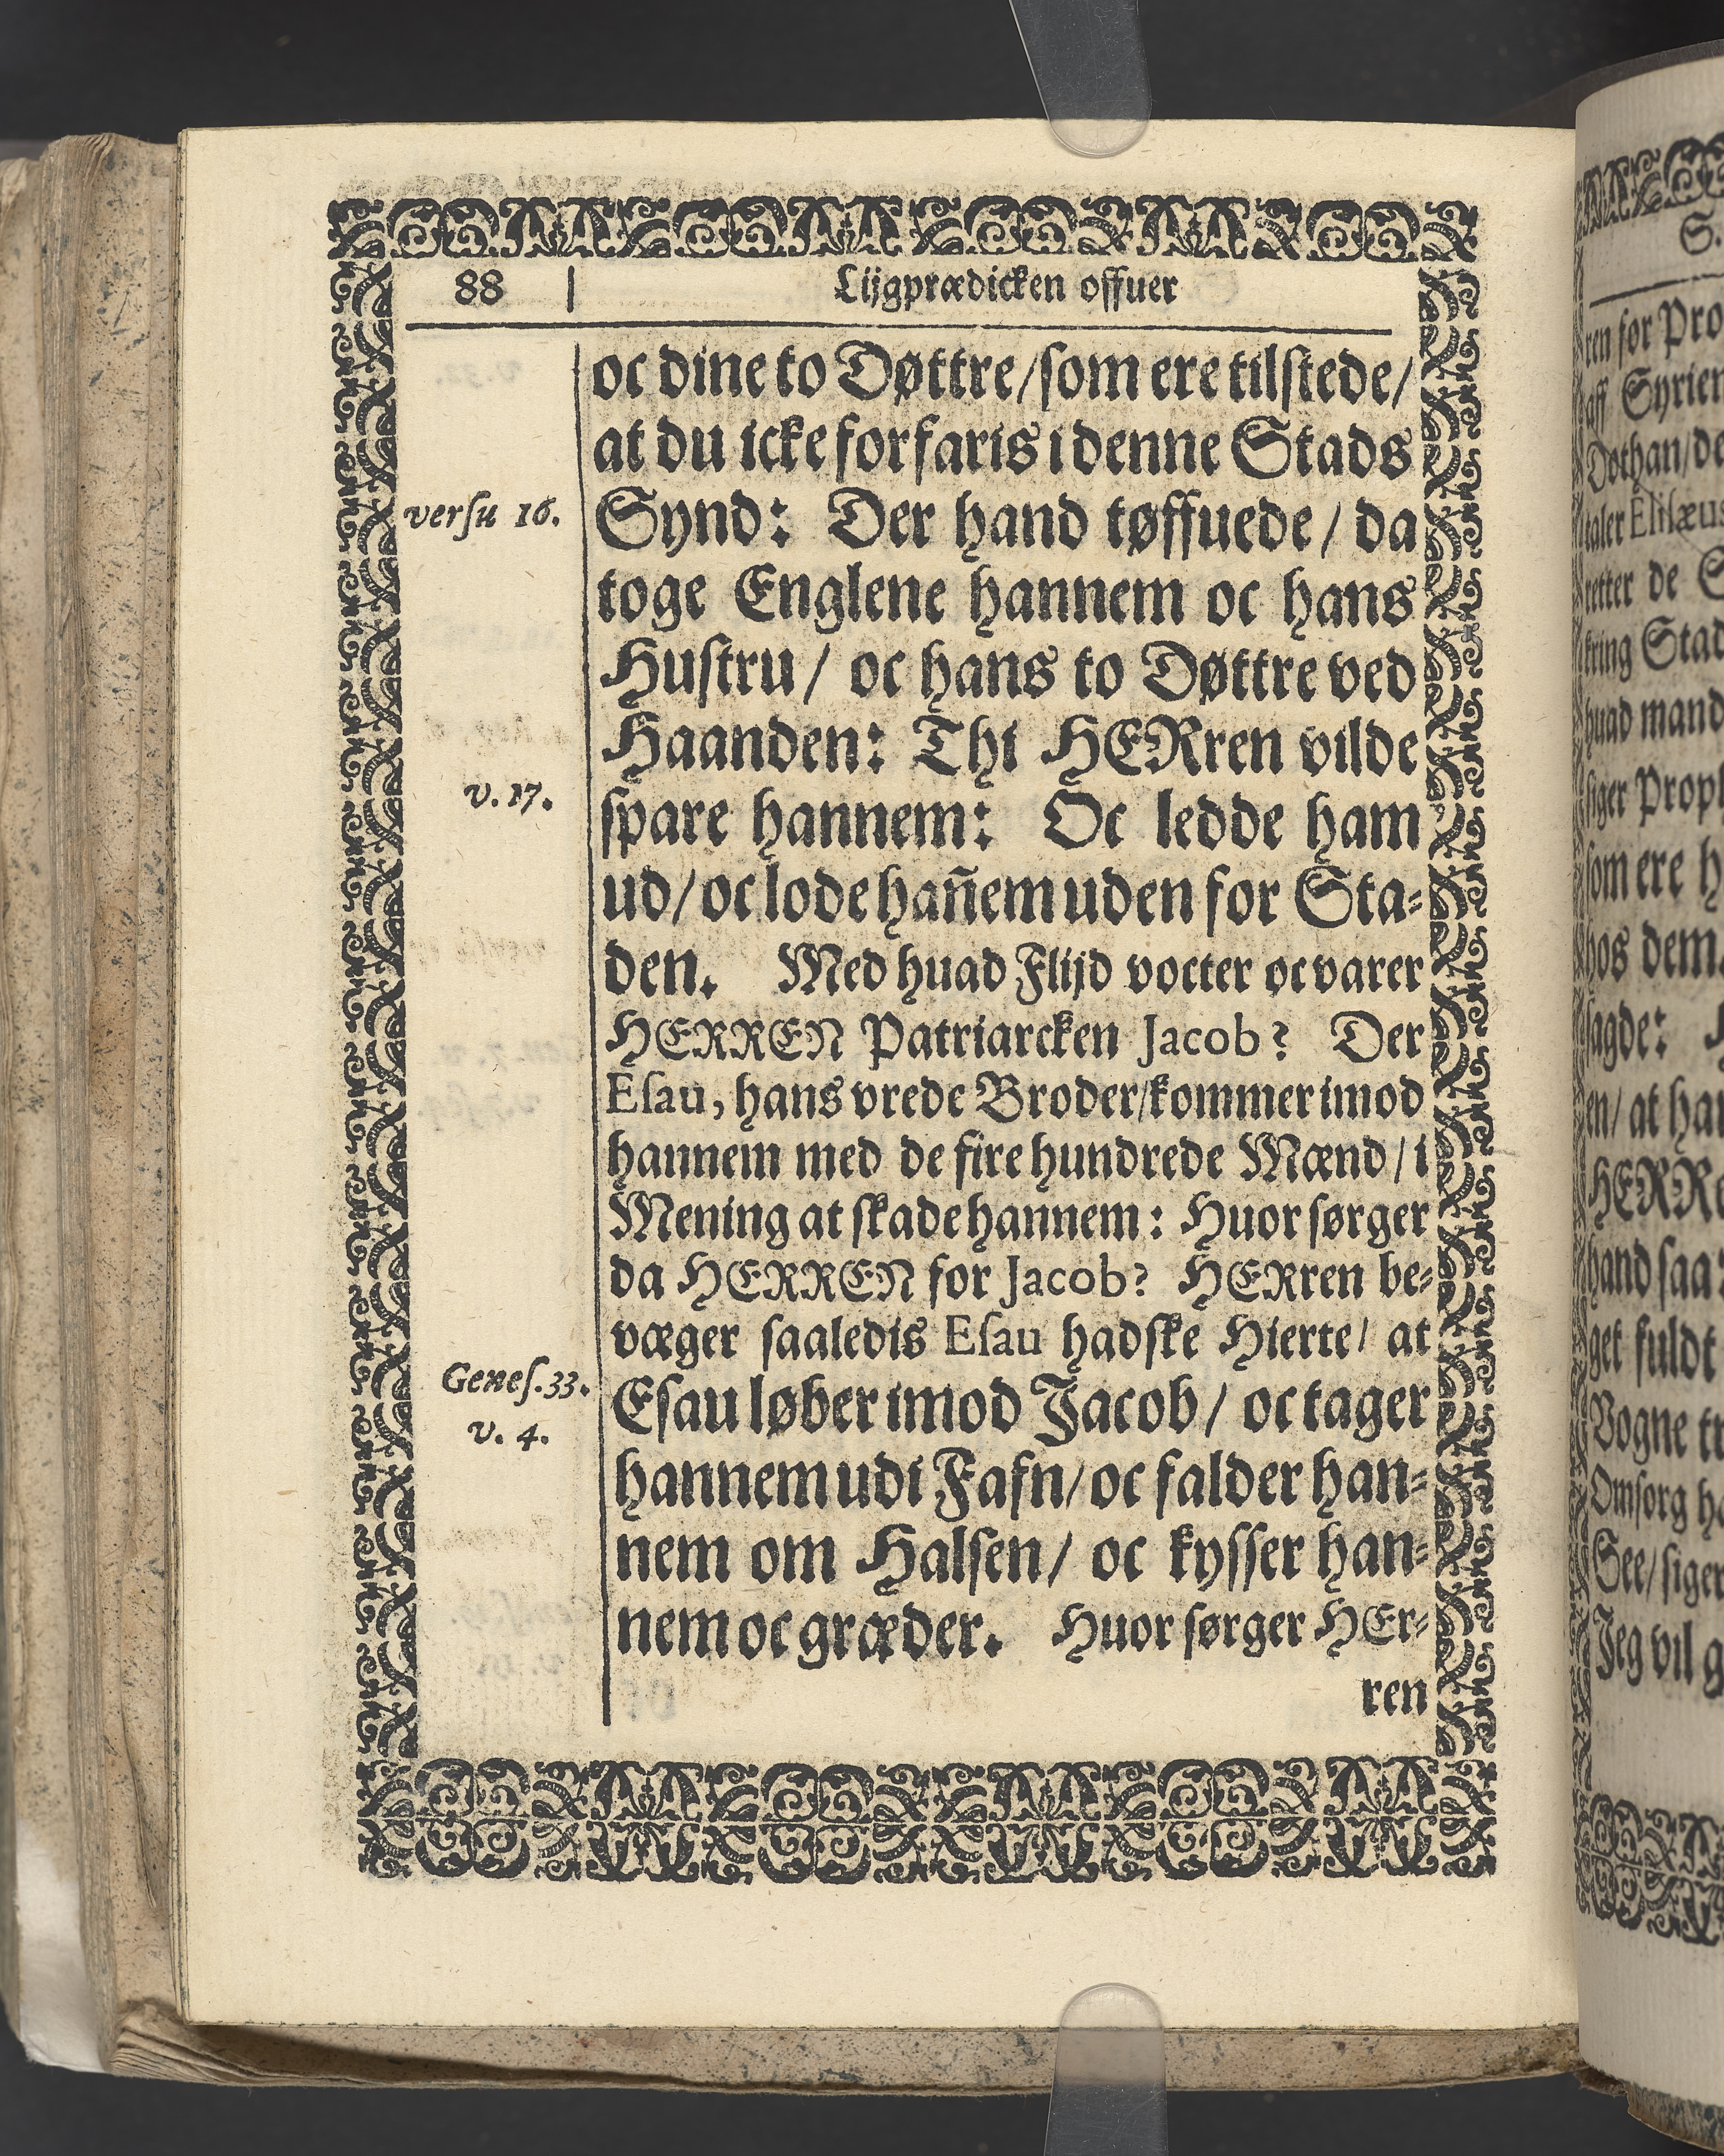 88 | Lijgprædicken offuer
oc dine to Døttre/som ere tilstede/
at du icke forfaris i denne Stads
versu 16. Synd: Der hand tøffuede/ da
toge Englene hannem oc hans
Hustru/ oc hans to Døttre ved
Haanden: Thi HERren vilde
v. 17. spare hannem: Oc ledde ham
ud/ oc lode hañem uden for Sta-
den. Med huad Flijd vocter oc varer
HERREN Patriarcken Jacob? Der
Esau, hans vrede Broder/kommer imod
hannem med de fire hundrede Mænd/ i
Mening at skade hannem: Huor sørger
da HERREN for Jacob? HERren be-
væger saaledis Esau hadske Hierte/ at
Genes. 33. v. 4. Esau løber imod Jacob/ oc tager
hannem udi Fafn/ oc falder han-
nem om Halsen/ oc kysser han-
nem oc græder. Huor sørger HEr-
ren
S.
ren for Pro
aff Syrien
Dothan/de
taler Elisæus
retter de S
kring Stad
huad mand
siger Proph
som ere h
hos dem.
sagde: H
en/ at han
HERRe
hand saa
get fuldt
Vogne tr
Omsorg h
See/ siger
Jeg vil g